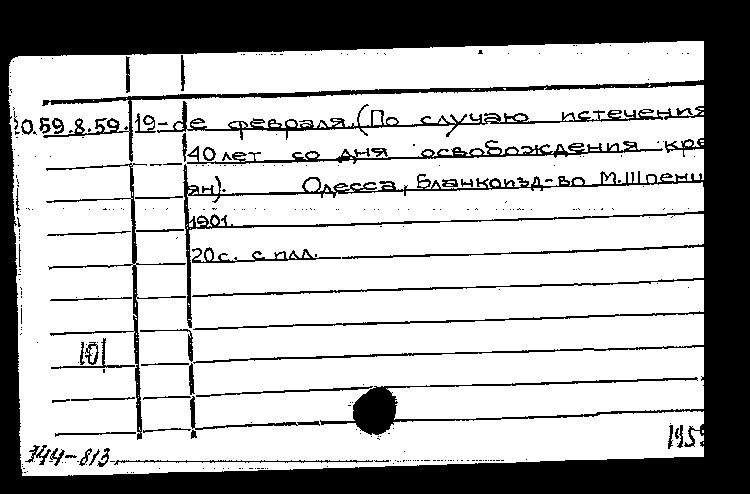 20.59.8.59. 19-ое февраля. (По случаю истечения
40 лет со дня освобождения кре
ян). Одесса, Бланкоизд-во М.Шпенц
1901.
20 с. с илл.
101
344-813.
1959